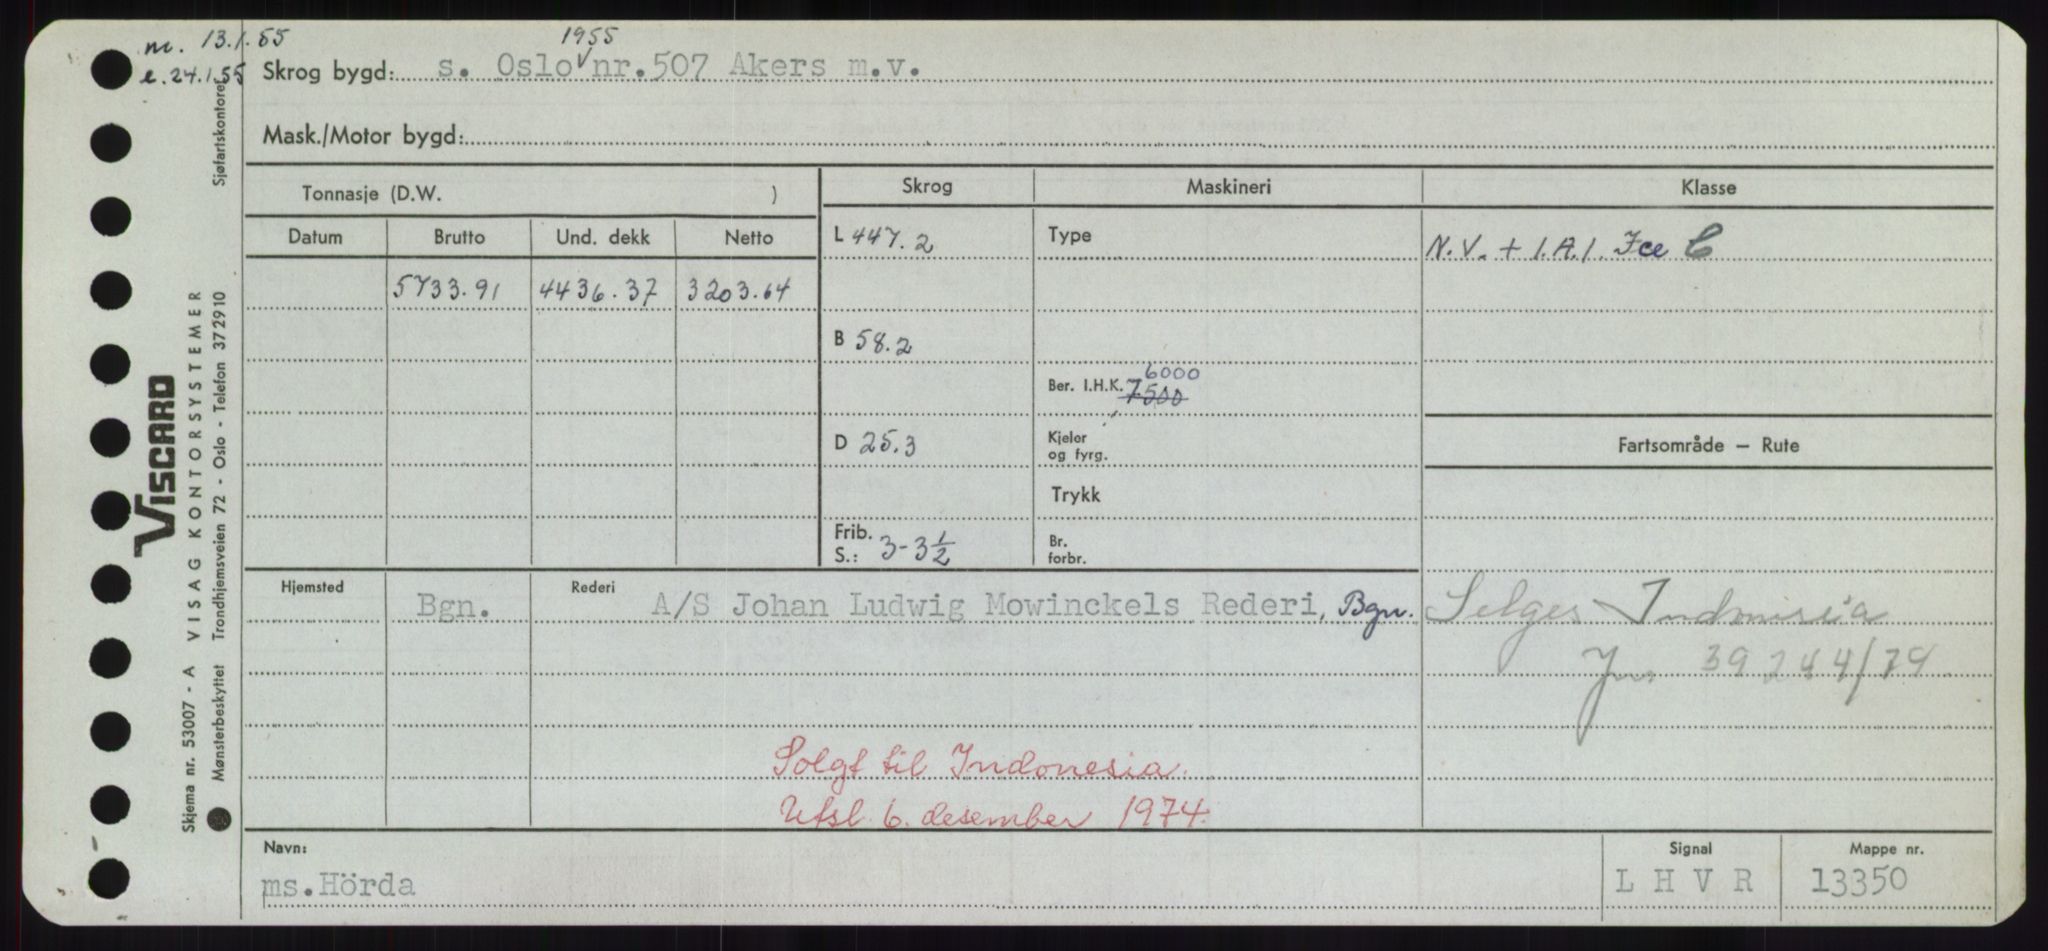 m. 13.1.55
e. 24.1.55
1955
Skrog bygd: s. Oslo nr.507 Akers m.v.
Mask./Motor bygd:
Tonnasje (D.W. )
Skrog
Maskineri
Klasse
Datum
Brutto
Und. dekk
Netto
5733.91
4436.37
3203.64
L 447.2
B 58.2
D 25.3
Frib.
S.: 3-3½
Type
6000
Ber. I.H.K. 7500
Kjeler
og fyrg.
Trykk
Br.
forbr.
N.V. + 1.A.1. Ice C
Fartsområde — Rute
Hjemsted
Bgn.
Rederi
A/S Johan Ludwig Mowinckels Rederi, Bgn.
Selges Indonesia
Jnr 39244/74
Solgt til Indonesia.
Utsl. 6. desember 1974.
Navn:
ms.Hörda
Signal
L H V R
Mappe nr.
13350
VISCARD
VISAG KONTORSYSTEMER
Skjema nr. 53007 - A
Mønsterbeskyttet Trondhjemsveien 72 - Oslo - Telefon 372910
Sjøfartskontoret